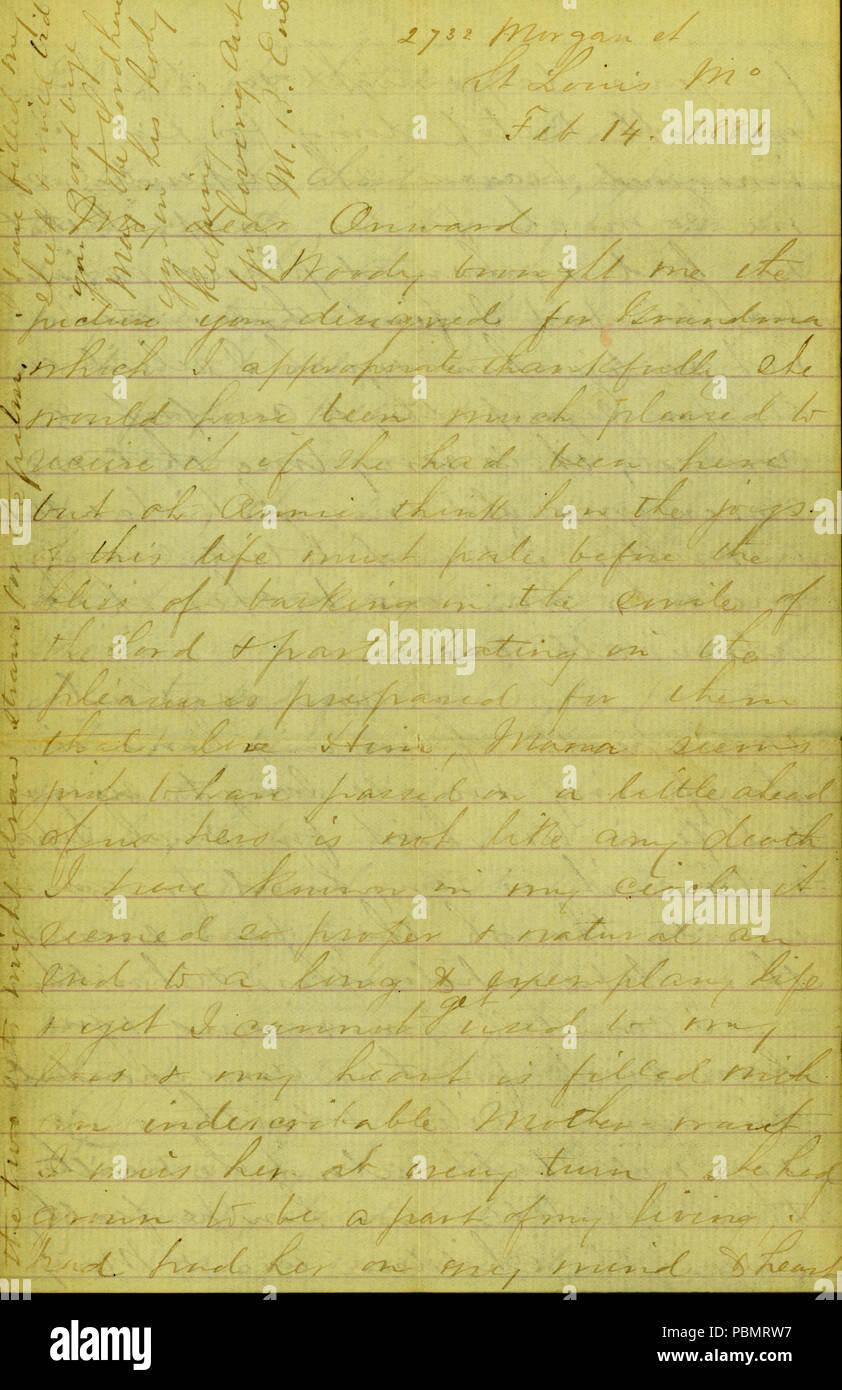 2732 Morgan st
St Louis Mo
Feb 14. 1881
My dear Onward
Woody brought me the
picture you designed for Grandma
which I appropriate thankfully She
would have been much pleased to
receive it if she had been here
but oh, Annie think how the joys
of this life must pale before the
bliss of basking in the smile of
the Lord & participating in the
pleasures prepared for them
that love Him, Mama seems
just to have passed on a little ahead
of us, hers is not like any death
I have known in my circle it
seemed so proper & natural an
end to a long & exemplary life
& yet I cannot get used to my
loss & my heart is filled with
an indescribable Mother-want
I miss her at every turn she had
grown to be a part of my living,
had had her on my mind & heart
the two sets might draw straws for the palm.
filled my
sheet & will bid
you Goodbye
May the Lord have
you in his holy
keeping
Yr loving Aunt
M. B.
alamy
Image ID: PBMRW7
www.alamy.com